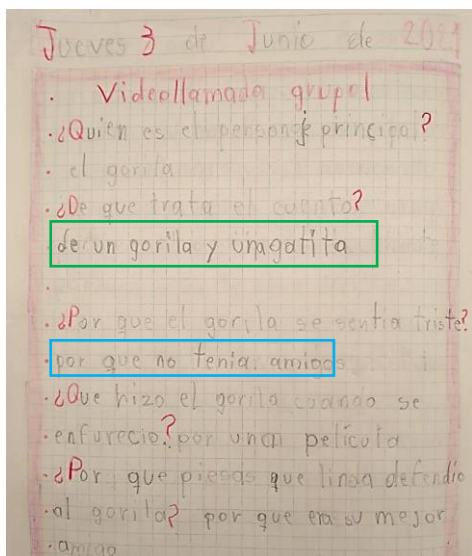 Jueves 3 de Junio de 2021
. Videollamada grupal
. ¿Quien es el personje principal?
. el gorila
. ¿De que trata el cuento?
de un gorila y unagatita
.
. ¿Por que el gorila se sentia triste?
. por que no tenia amigos
. ¿Que hizo el gorila cuando se
. enfurecio? por una pelicula
. ¿Por que piesas que linda defendio
. al gorila? por que era su mejor
. amigo